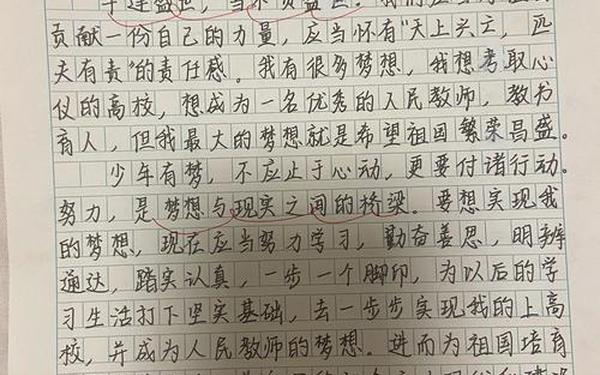 生逢盛世，当不负盛世。我们应当为祖国
贡献一份自己的力量，应当怀有“天上兴亡，匹
夫有责”的责任感。我有很多梦想，我想考取心
仪的高校，想成为一名优秀的人民教师，教书
育人，但我最大的梦想就是希望祖国繁荣昌盛。
少年有梦，不应止于心动，更要付诸行动。
努力，是梦想与现实之间的桥梁。要想实现我
的梦想，现在应当努力学习，勤奋善思，明辨
通达，踏实认真，一步一个脚印，为以后的学
习生活打下坚实基础，去一步步实现我的上高
校，并成为人民教师的梦想。进而为祖国培育